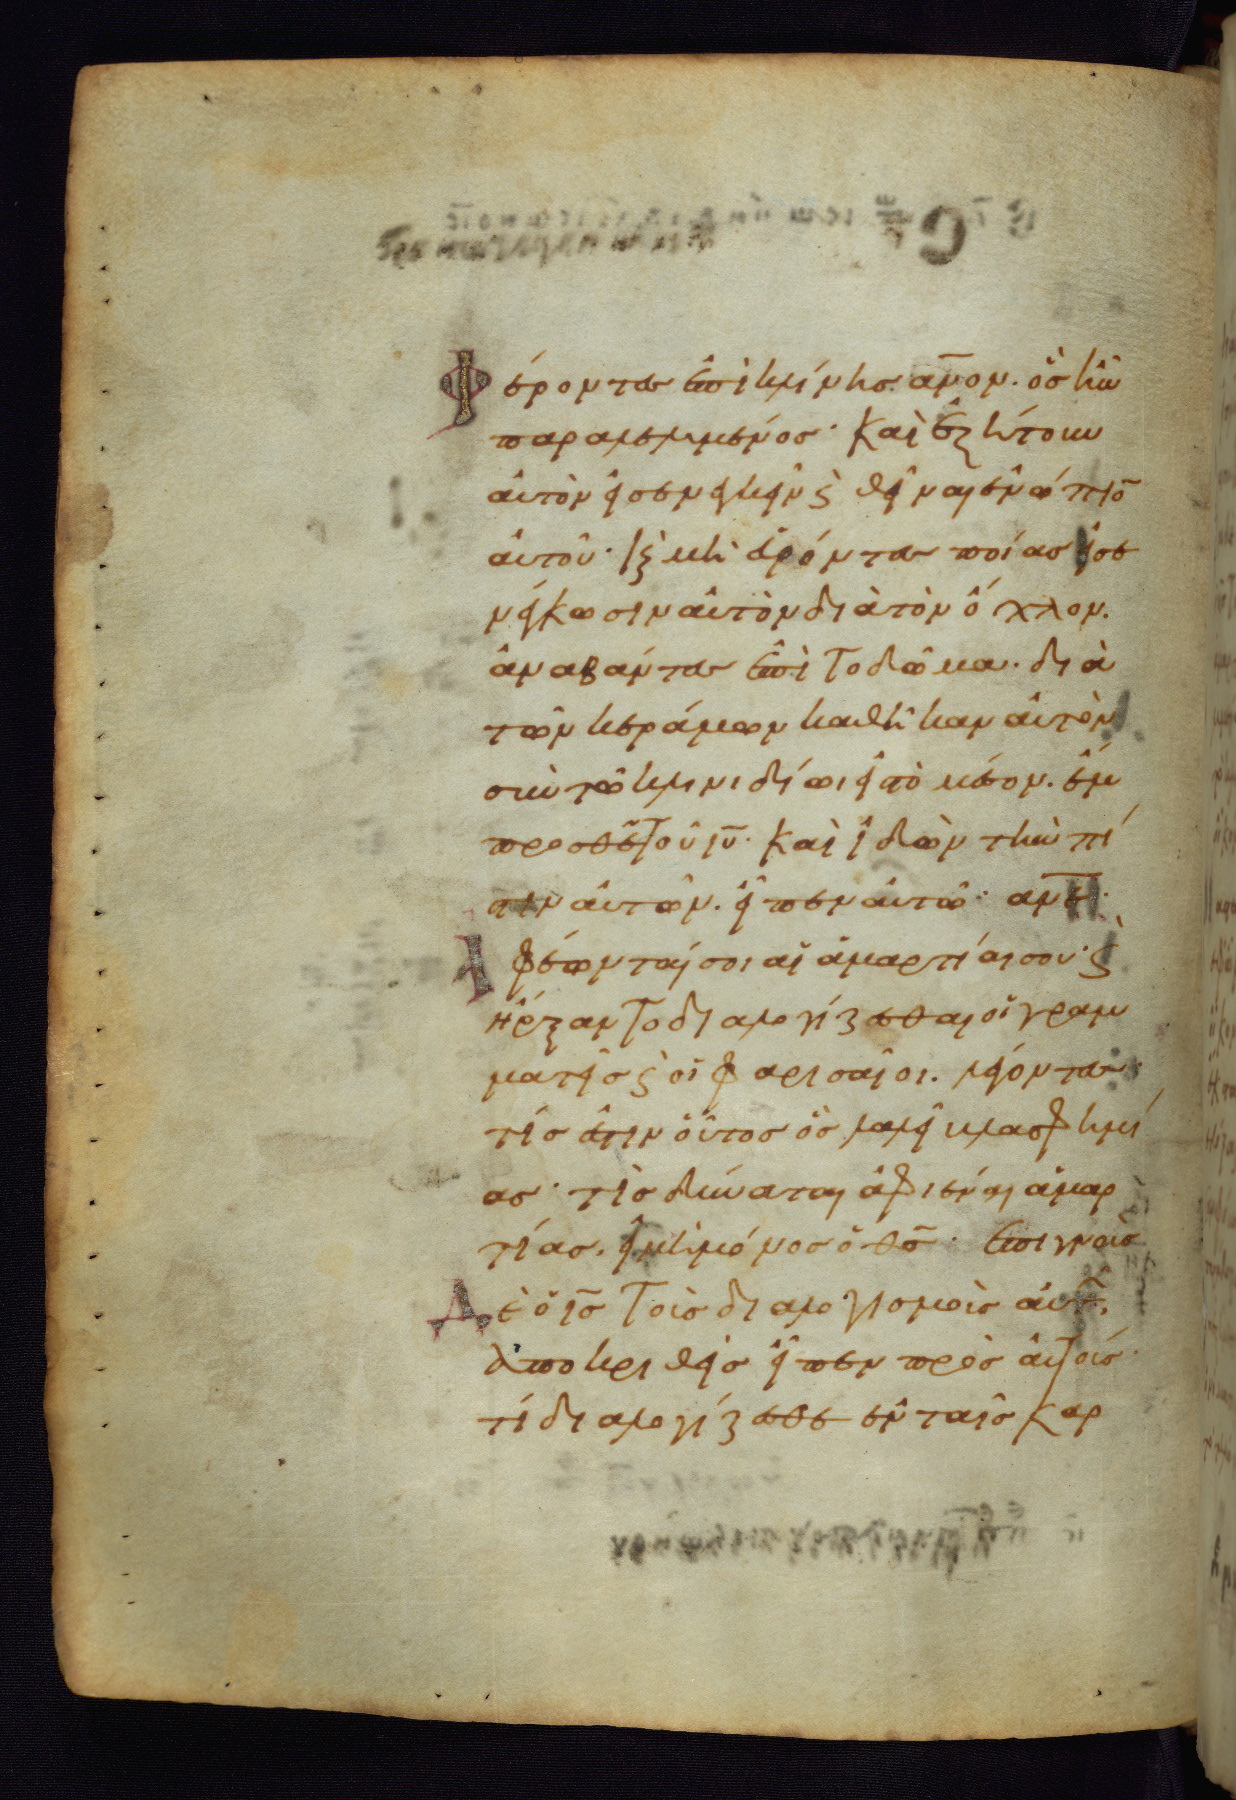 Φέροντες ἐπὶ κλίνης. α̅ν̅ο̅ν. ὃς ἦν
παραλελυμένος· καὶ ἐζήτουν
αὐτὸν εἰσενεγκεῖν ϗ θεῖναι ἐνώπιο̅
αὐτοῦ· ϗ μὴ εὑρόντες ποίας εἰσε
νέγκωσιν αὐτὸν διὰ τὸν ὄχλον.
ἀναβάντες ἐπὶ το δῶμα. διὰ
τῶν κεράμων καθῆκαν αὐτὸν
σὺν τῶ κλινιδίωι εἰς τὸ μέσον. ἔμ
προσθε̅ τοῦ ι̅υ̅. καὶ ἰδὼν τὴν πί
στιν αὐτῶν. εἶπεν αὐτῶ· α̅ν̅ε̅·
Ἀφέωνταί σοι αἱ ἁμαρτίαι σου· ϗ
ἤρξαντο διαλογίζεσθαι οἱ γραμ
ματεῖς ϗ οἱ φαρισαῖοι. λέγοντες·
τίς ἐστιν οὗτος ὃς λαλεῖ βλασφημί
ας· τίς δύναται ἀφιέναι ἁμαρ
τίας. εἰ μὴ μόνος ὁ θ̅ς̅· ἐπιγνοὺς
Δὲ ὁ ι̅ς̅ τοὺς διαλογισμοὺς αὐτῶ̅.
ἀποκριθεὶς εἶπεν πρὸς αὐτούς·
τί διαλογίζεσθε ἐν ταῖς καρ